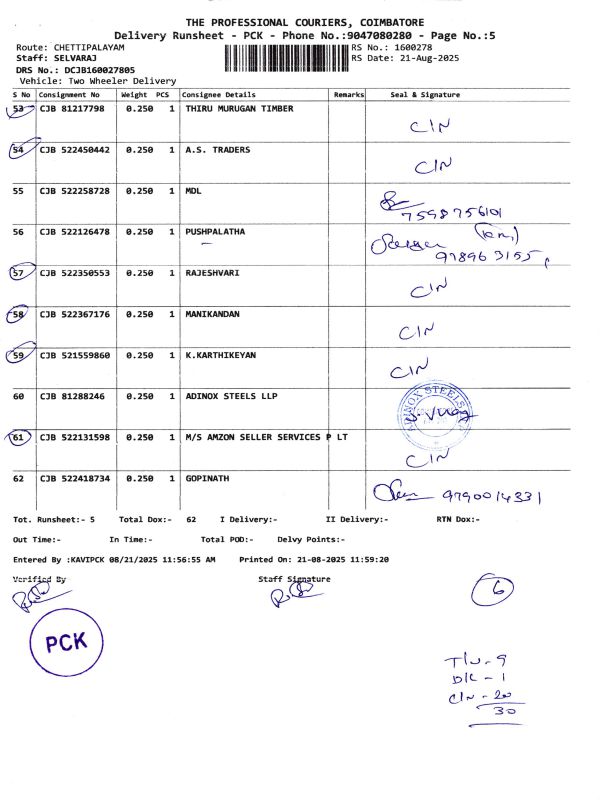 THE PROFESSIONAL COURIERS, COIMBATORE
Delivery Runsheet - PCK - Phone No.:9047080280 - Page No.:5
Route: CHETTIPALAYAM RS No.: 1600278
Staff: SELVARAJ RS Date: 21-Aug-2025
DRS No.: DCJB160027805
Vehicle: Two Wheeler Delivery
S No Consignment No Weight PCS Consignee Details Remarks Seal & Signature
53 CJB 81217798 0.250 1 THIRU MURUGAN TIMBER C/N
54 CJB 522450442 0.250 1 A.S. TRADERS C/N
55 CJB 522258728 0.250 1 MDL 7598756101
56 CJB 522126478 0.250 1 PUSHPALATHA
57 CJB 522350553 0.250 1 RAJESHVARI C/N
58 CJB 522367176 0.250 1 MANIKANDAN C/N
59 CJB 521559860 0.250 1 K.KARTHIKEYAN C/N
60 CJB 81288246 0.250 1 ADINOX STEELS LLP
61 CJB 522131598 0.250 1 M/S AMZON SELLER SERVICES P LT C/N
62 CJB 522418734 0.250 1 GOPINATH 9790014331
Tot. Runsheet:- 5 Total Dox:- 62 I Delivery:- II Delivery:- RTN Dox:-
Out Time:- In Time:- Total POD:- Delvy Points:-
Entered By :KAVIPCK 08/21/2025 11:56:55 AM Printed On: 21-08-2025 11:59:20
Verified By Staff Signature
6
PCK
T/U - 9
D/L - 1
C/N - 20
30